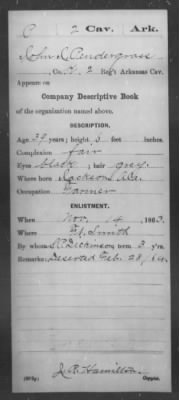 P 2 Cav. Ark.
John C. Pendergrass
Co. , 2 Reg't Arkansas Cav.
Appears on
Company Descriptive Book
of the organization named above.
DESCRIPTION.
Age 39 years; height 5 feet inches.
Complexion fair
Eyes black; hair grey
Where born Jackson, Ala.
Occupation Farmer
ENLISTMENT.
When Nov. 14, 1863.
Where Ft. Smith
By whom S.P. Dickinson; term 3 y'rs.
Remarks: Deserted Feb. 28/64
J. R. Hamilton
Copyist.